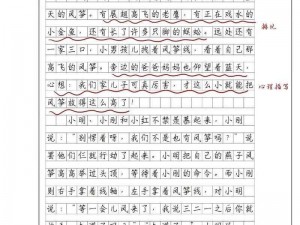 天的风筝。有展翅高飞的老鹰，有正在戏水的
小金鱼，还有长了许多只脚的蜈蚣。远处还有
一家三口，小男孩拉拽着风筝线，看着自己那
高高飞的风筝。旁边的爸爸妈妈也仰望着蓝天，
心想：我们的儿子可真厉害，才这么小就能把
风筝放得这么高了！
小刚、小明和小红不禁羡慕起来。小刚
说：“别愣着呀，我们不是也有风筝吗？”说
罢他们仨就行动了起来。小明把自己的燕子风
筝高高举过头顶，等待着小刚的命令。而小刚
则右手拿着线轴，左手拿着风筝线，对小明
说：“等一会儿风来了，我说三二一之后你就
排比
心理描写